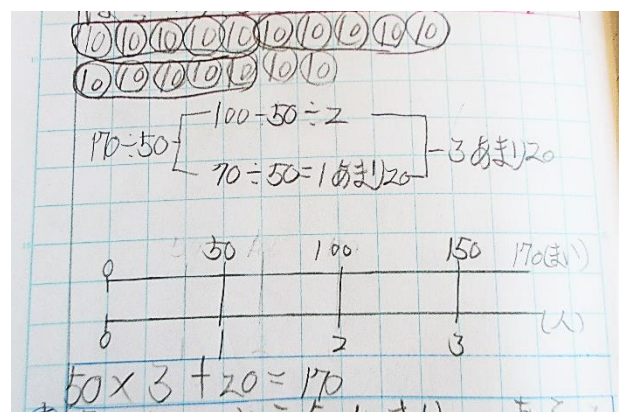 10 10 10 10 10 10 10 10 10 10
10 10 10 10 10 10 10
100÷50÷2
170÷50
3あまり20
70÷50=1あまり20
0 50 100 150 170(まい)
0 1 2 3 (人)
50×3+20=170